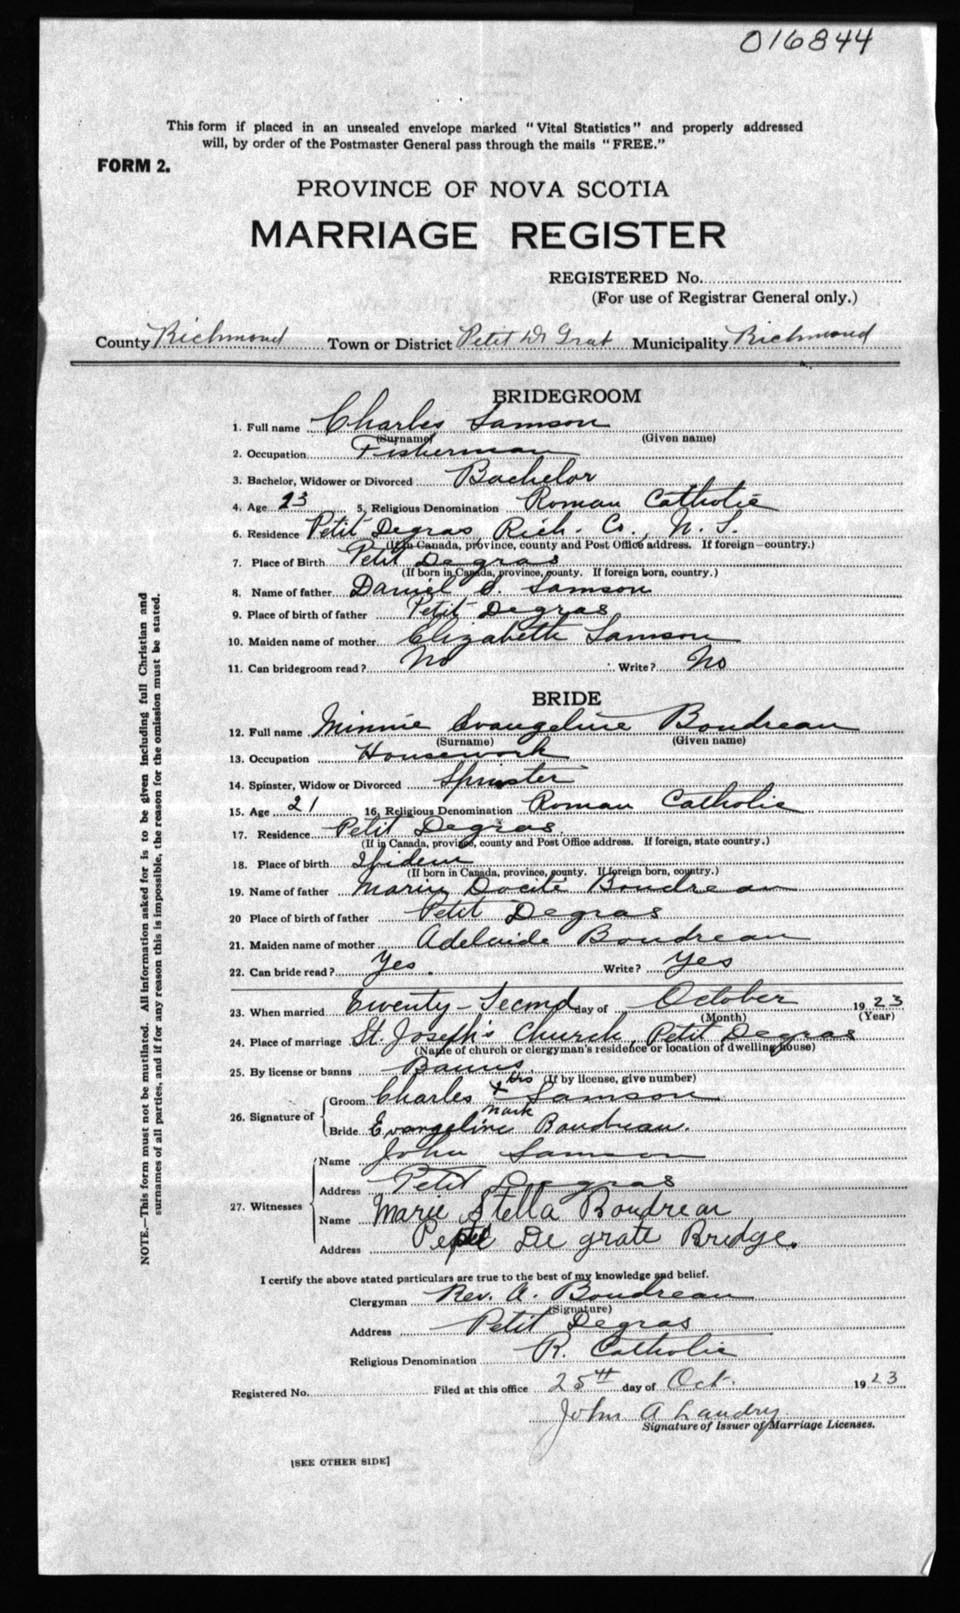 016844
This form if placed in an unsealed envelope marked "Vital Statistics" and properly addressed
will, by order of the Postmaster General pass through the mails "FREE."
FORM 2.
PROVINCE OF NOVA SCOTIA
MARRIAGE REGISTER
REGISTERED No.
(For use of Registrar General only.)
County Richmond Town or District Petit De Grat Municipality Richmond
BRIDEGROOM
1. Full name Charles Samson
(Surname) (Given name)
2. Occupation Fisherman
3. Bachelor, Widower or Divorced Bachelor
4. Age 23 5. Religious Denomination Roman Catholic
6. Residence Petit Degras, Rich. Co., N. S.
(If in Canada, province, county and Post Office address. If foreign—country.)
7. Place of Birth Petit Degras
(If born in Canada, province, county. If foreign born, country.)
8. Name of father Daniel J. Samson
9. Place of birth of father Petit Degras
10. Maiden name of mother Elizabeth Samson
11. Can bridegroom read? No Write? No
BRIDE
12. Full name Minnie Evangeline Boudreau
(Surname) (Given name)
13. Occupation Housework
14. Spinster, Widow or Divorced Spinster
15. Age 21 16. Religious Denomination Roman Catholic
17. Residence Petit Degras
(If in Canada, province, county and Post Office address. If foreign, state country.)
18. Place of birth Ibidem
(If born in Canada, province, county. If foreign born, country.)
19. Name of father Docité Boudreau
20 Place of birth of father Petit Degras
21. Maiden name of mother Adelaide Boudreau
22. Can bride read? Yes. Write? Yes
23. When married Twenty-Second day of October 1923
(Month) (Year)
24. Place of marriage St. Joseph's Church, Petit Degras
(Name of church or clergyman's residence or location of dwelling house)
25. By license or banns Banns
(If by license, give number)
26. Signature of
Groom Charles his X mark Samson
Bride Evangeline Boudreau.
27. Witnesses
Name John Samson
Address Petit Degras
Name Marie Stella Boudreau
Address De grate Bridge.
I certify the above stated particulars are true to the best of my knowledge and belief.
Clergyman Rev. A. Boudreau
(Signature)
Address Petit Degras
Religious Denomination R. Catholic
Registered No. Filed at this office 25th day of Oct. 1923
John A Landry
Signature of Issuer of Marriage Licenses.
[SEE OTHER SIDE]
NOTE.—This form must not be mutilated. All information asked for is to be given including full Christian and
surnames of all parties, and if for any reason this is impossible, the reason for the omission must be stated.